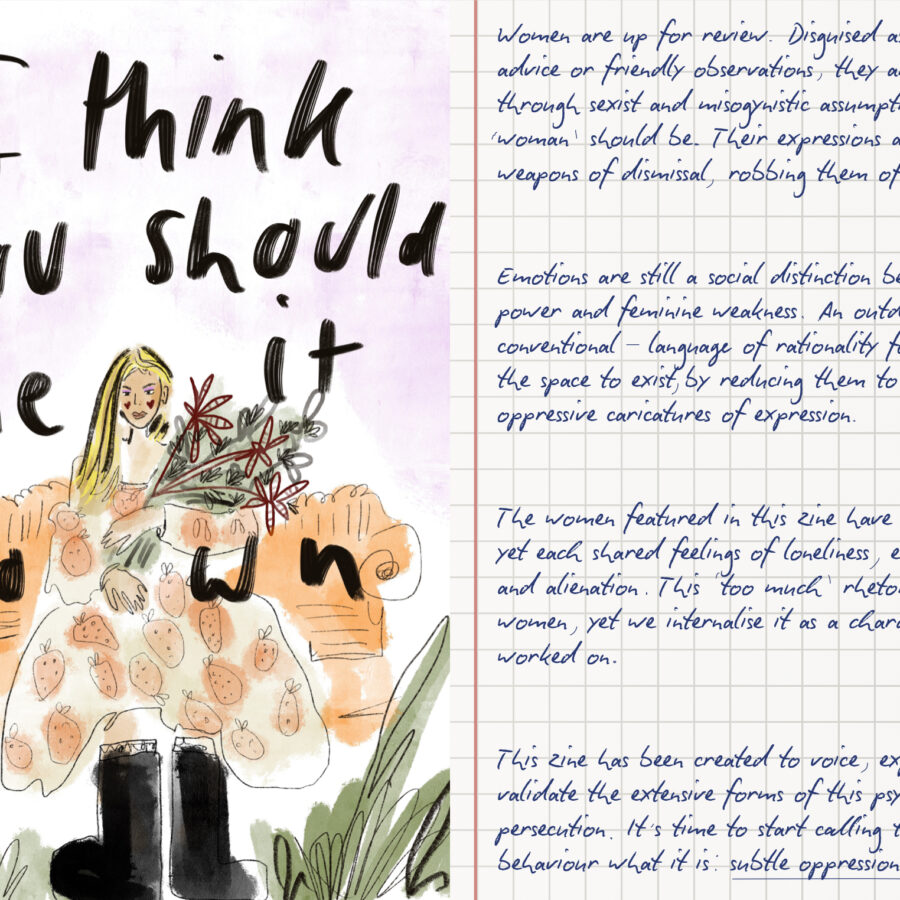 I think
should
it
wn
Women are up for review. Disguised as
advice or friendly observations, they
through sexist and misogynistic
'woman' should be. Their expressions
weapons of dismissal, robbing them of
Emotions are still a social distinction
power and feminine weakness. An
conventional – language of rationality
the space to exist, by reducing them to
oppressive caricatures of expression.
The women featured in this zine have
yet each shared feelings of loneliness,
and alienation. This 'too much'
women, yet we internalise it as a
worked on.
This zine has been created to voice,
validate the extensive forms of this
persecution. It's time to start calling
behaviour what it is: subtle oppression